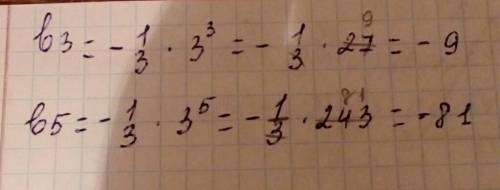 b3 = - 1/3 · 3³ = - 1/3 · 27 9 = - 9
b5 = - 1/3 · 3⁵ = - 1/3 · 243 81 = - 81